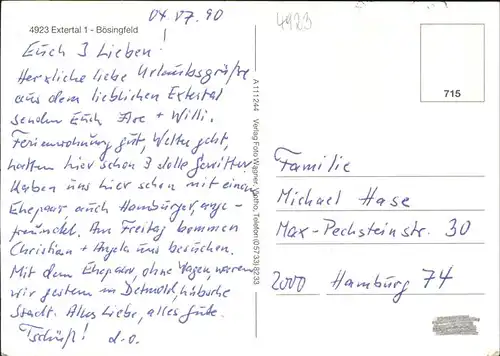 04.07.90
4923
4923 Extertal 1 - Bösingfeld
Euch 3 Lieben!
Herzliche liebe Urlaubsgrüße
aus dem lieblichen Extertal
senden Euch + Willi.
Ferienwohnung gut, Wetter geht,
hatten hier schon 3 dolle Gewitter.
Haben uns hier schon mit einem
Ehepaar auch Hamburger, ange-
freundet. Am Freitag kommen
Christian + Angela uns besuchen.
Mit dem Ehepaar, ohne Wagen, waren
wir gestern in Detmold, hübsche
Stadt. Alles Liebe, alles Gute.
Tschüß! d.o.
A 111244 Verlag Foto Wagner, Vlotho, Telefon (05733) 8233
715
Familie
Michael Hase
Max-Pechsteinstr. 30
2000 Hamburg 74